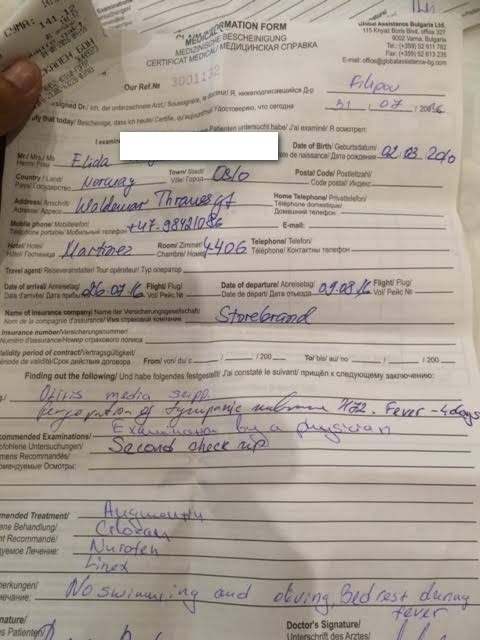 СУМА: 141.
MEDICAL INFORMATION FORM
MEDIZINISCHE BESCHEINIGUNG
CERTIFICAT MEDICAL/ МЕДИЦИНСКАЯ СПРАВКА
Global Assistance Bulgaria Ltd.
115 Knyaz Boris Blvd., office 327
9002 Varna, Bulgaria
Tel.: (+359) 52 611 782
Fax: (+359) 52 613 235
E-mail: office@globalassistance-bg.com
Our Ref.№ 3001132
signed Dr./ Ich, der unterzeichnete Arzt/ Soussigné, Я, нижеподписавшийся Д-р Filipov
certify that today:/ Bescheinige, dass ich heute/ Certifie, qu'aujourd'hui/ Удостоверяю, что сегодня 31 / 07 /
I examined Patienten untersucht habe/ J'ai examiné/ Я осмотрел:
Mr./ Mrs./ Ms Elida
Herrn/ Frau
Date of Birth/ Geburtsdatum/
Date de naissance/ Дата рождения 02.03.2010
Country / Land/ Norway Town/ Stadt/ Oslo
Pays/ Государство Ville/ Город
Postal Code/ Postleitzahl/
Code postal/ Индекс
Address/ Anschrift/ Waldemar Thranes gt
Adresse/ Адресс
Home Telephone/ Privattelefon/
Téléphone domestique/
Домашний телефон
Mobile phone/ Mobiltelefon/ +47-98421086 E-mail:
Téléphone portable/ Мобильный телефон
Hotel/ Hotel/ Martinez Room/ Zimmer/ 4406 Telephone/ Telefon/
Hôtel/ Гостиница Chambre/ Номер Téléphone/ Контактны телефон
Travel agent/ Reiseveranstalter/ Tour opérateur/ Тур оператор
Date of arrival/ Anreisetag/ 26.07.16 Flight/ Flug/ Date of departure/ Abreisetag/ 09.08.16 Flight/ Flug/
Date d'arrivée/ Дата прибытия Vol/ Рейс № Date de départ/ Дата отъезда Vol/ Рейс №
Name of insurance company/ Name der Versicherungsgesellschaft/ Storebrand
Nom de la compagnie d'assurance/ Имя страховой компании
Insurance number/ Versicherungsnummer/
Numéro d'assurance/ Номер страхового полиса
Validity period of contract/ Vertragsgültigkeit/ From/ von/ du/ с / / 200 To/ bis/ au/ по / / 200
Période de validité/ Срок действия договора
Finding out the following/ Und habe folgendes festgestellt/ J'ai constaté le suivant/ пришёл к следующему заключению:
Otitis media supp.
Perforation of tympanic membrane H72. Fever - 4 days
Examination by a physician
Recommended Examinations/ Second check up
Empfohlene Untersuchungen/
Examens Recommandés/
Рекомендуемые Осмотры:
Recommended Treatment/ Augmentin
Empfohlene Behandlung/ Ciloxan
Traitement Recommandé/ Nurofen
Рекомендуемое Лечение: Linex
Bemerkungen/ No swimming and diving. Bed rest during
Примечание: fever
Signature/
des Patienten/
Doctor's Signature/
Unterschrift des Arztes/